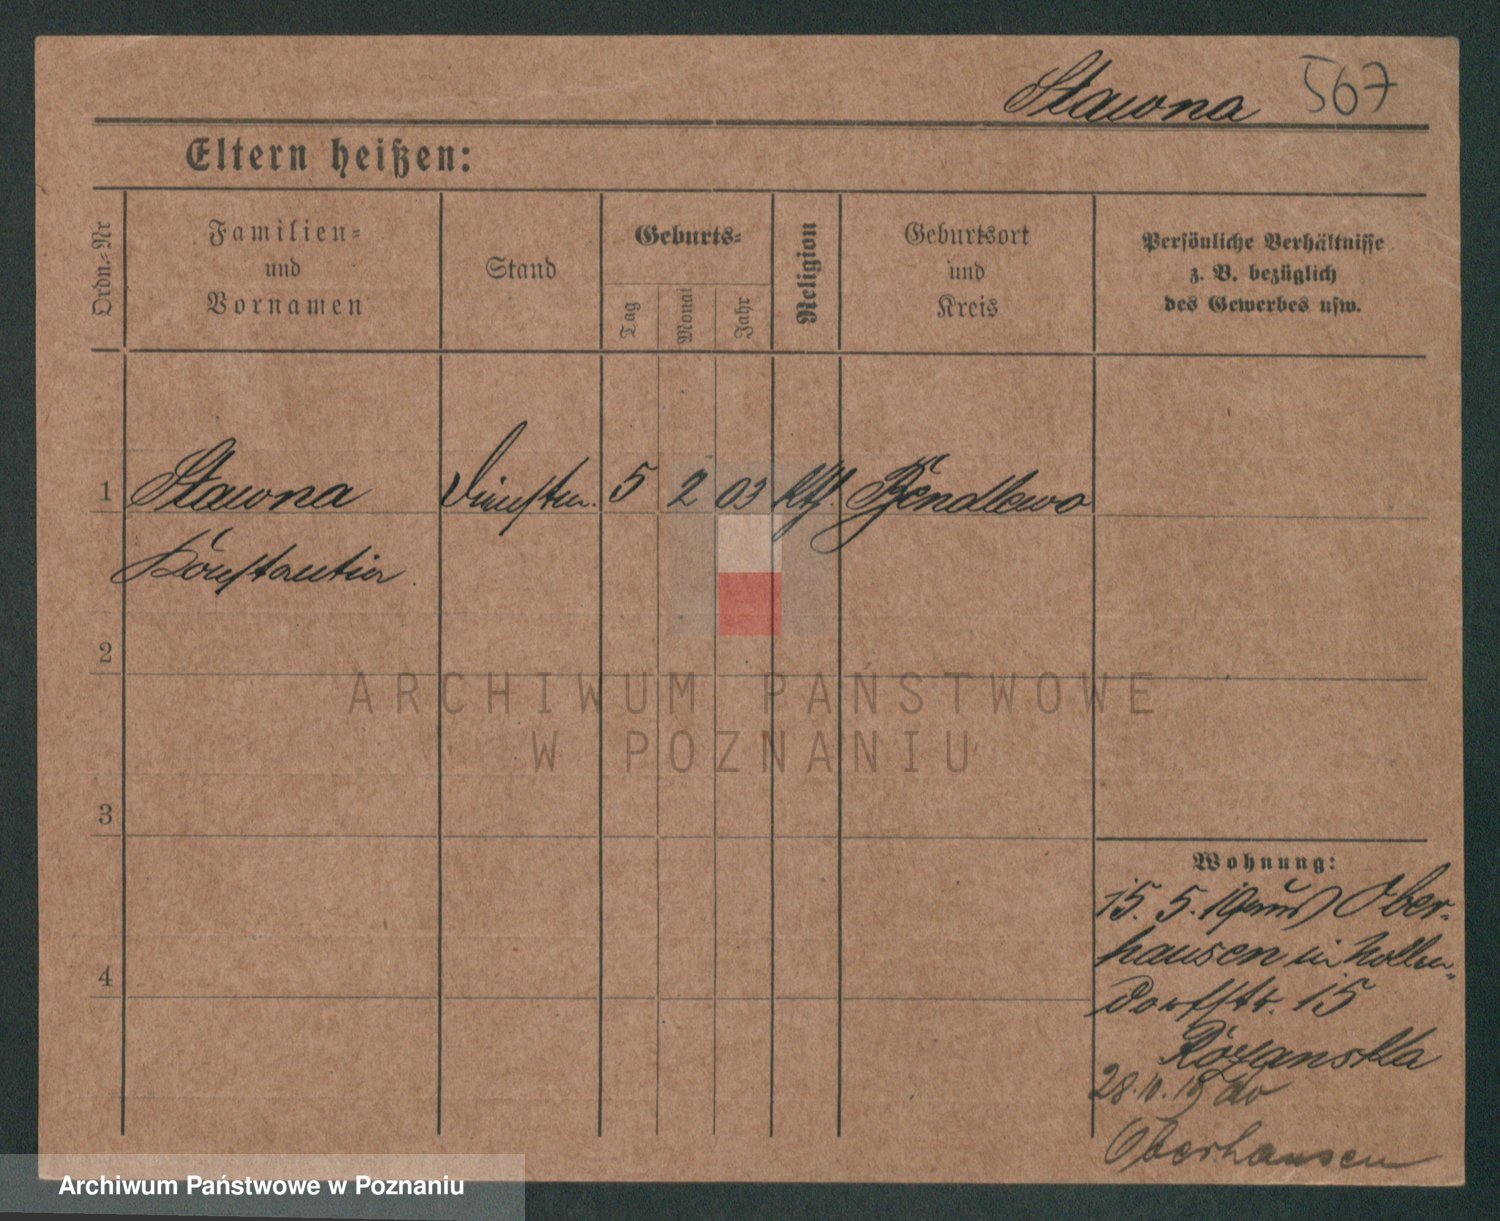 Stawna 567
Eltern heißen:
Ordn.-Nr
Familien-
und
Vornamen
Stand
Geburts-
Tag
Monat
Jahr
Religion
Geburtsort
und
Kreis
Persönliche Verhältnisse
z. B. bezüglich
des Gewerbes usw.
1 Stawna 5 2 03 kth. Bendlewo
Konstantin
2
ARCHIWUM PAŃSTWOWE
W POZNANIU
3
4
Wohnung:
15. 5. 19 Ober-
hausen in Nollen-
dorfstr. 15
Rozanska
28.10.19
Oberhausen
Archiwum Państwowe w Poznaniu